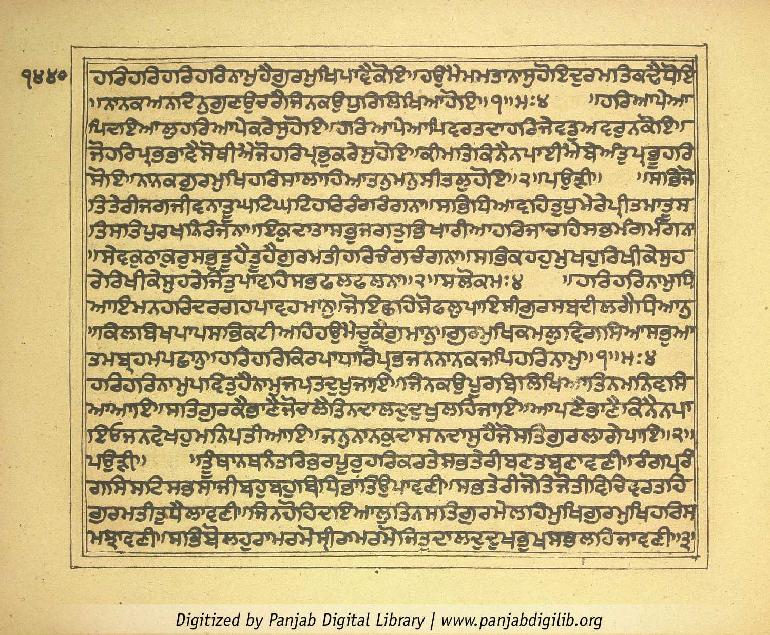 ੧੪੪੦
ਹਰਿਹਰਿਹਰਿਹਰਿਨਾਮੁਹੈਗੁਰਮੁਖਿਪਾਵੈਕੋਇ॥ਹਉਮੈਮਮਤਾਨਾਸੁਹੋਇਦੁਰਮਤਿਕਢੈਧੋਇ
॥ਨਾਨਕਅਨਦਿਨੁਗੁਣਉਚਰੈਜਿਨਕਉਧੁਰਿਲਿਖਿਆਹੋਇ॥੧॥ਮਃ੪ ॥ਹਰਿਆਪੇਆ
ਪਿਦਇਆਲੁਹਰਿਆਪੇਕਰੇਸੁਹੋਇ॥ਹਰਿਆਪੇਆਪਿਵਰਤਦਾਹਰਿਜੇਵਡੁਅਵਰੁਨਕੋਇ॥
ਜੋਹਰਿਪ੍ਰਭਭਾਵੈਸੋਥੀਐਜੋਹਰਿਪ੍ਰਭੁਕਰੇਸੁਹੋਇ॥ਕੀਮਤਿਕਿਨੈਨਪਾਈਆਬੇਅੰਤੁਪ੍ਰਭੂਹਰਿ
ਸੋਇ॥ਨਾਨਕਗੁਰਮੁਖਿਹਰਿਸਾਲਾਹਿਆਤਨੁਮਨੁਸੀਤਲੁਹੋਇ॥੨॥ਪਉੜੀ॥ ॥ਸਭਜੋ
ਤਿਤੇਰੀਜਗਜੀਵਨਾਤੂਘਟਿਘਟਿਹਰਿਰੰਗਰੰਗਨਾ॥ਸਭਿਧਿਆਵਹਿਤੁਧੁਮੇਰੇਪ੍ਰੀਤਮਾਤੂਸ
ਤਿਸਤਿਪੁਰਖਨਿਰੰਜਨਾ॥ਇਕੁਦਾਤਾਸਭੁਜਗਤੁਭਿਖਾਰੀਆਹਰਿਜਾਚਹਿਸਭਮੰਗਮੰਗਨਾ
॥ਸੇਵਕੁਠਾਕੁਰੁਸਭੁਤੂਹੈਤੂਹੈਗੁਰਮਤੀਹਰਿਚੰਗਚੰਗਨਾ॥ਸਭਿਕਹਹੁਮੁਖਹੁਰਿਖੀਕੇਸੁਹ
ਰੇਰਿਖੀਕੇਸੁਹਰੇਜਿਤੁਪਾਵਹਿਸਭਫਲਫਲਨਾ॥੨॥ਸਲੋਕਮਃ੪ ॥ਹਰਿਹਰਿਨਾਮੁਧਿ
ਆਇਮਨਹਰਿਦਰਗਹਪਾਵਹਿਮਾਨੁ॥ਜੋਇਛਹਿਸੋਫਲੁਪਾਇਸੀਗੁਰਸਬਦੀਲਗੈਧਿਆਨੁ
॥ਕਿਲਵਿਖਪਾਪਸਭਿਕਟੀਅਹਿਹਉਮੈਚੁਕੈਗੁਮਾਨੁ॥ਗੁਰਮੁਖਿਕਮਲੁਵਿਗਸਿਆਸਭੁਆ
ਤਮਬ੍ਰਹਮੁਪਛਾਨੁ॥ਹਰਿਹਰਿਕਿਰਪਾਧਾਰਿਪ੍ਰਭਜਨਨਾਨਕਜਪਿਹਰਿਨਾਮੁ॥੧॥ਮਃ੪
ਹਰਿਹਰਿਨਾਮੁਪਵਿਤੁਹੈਨਾਮੁਜਪਤਦੁਖੁਜਾਇ॥ਜਿਨਕਉਪੂਰਬਿਲਿਖਿਆਤਿਨਮਨਿਵਸਿ
ਆਆਇ॥ਸਤਿਗੁਰਕੈਭਾਣੈਜੋਚਲੈਤਿਨਦਾਲਦੁਦੁਖੁਲਹਿਜਾਇ॥ਆਪਣੈਭਾਣੈਕਿਨੈਨਪਾ
ਇਓਜਨਵੇਖਹੁਮਨਿਪਤੀਆਇ॥ਜਨੁਨਾਨਕੁਦਾਸਨਦਾਸੁਹੈਜੋਸਤਿਗੁਰਲਾਗੇਪਾਇ॥੨॥
ਪਉੜੀ॥ ॥ਤੂੰਥਾਨਥਨੰਤਰਿਭਰਪੂਰੁਹਹਿਕਰਤੇਸਭਤੇਰੀਬਣਤਬਣਾਵਣੀ॥ਰੰਗਪਰੰ
ਗਸਿਸਟਿਸਭਸਾਜੀਬਹੁਬਹੁਬਿਧਿਭਾਂਤਿਉਪਾਵਣੀ॥ਸਭਤੇਰੀਜੋਤਿਜੋਤੀਵਿਚਿਵਰਤਹਿ
ਗੁਰਮਤੀਤੁਧੈਲਾਵਣੀ॥ਜਿਨਹੋਹਿਦਇਆਲੁਤਿਨਸਤਿਗੁਰਮੇਲਹਿਮੁਖਿਗੁਰਮੁਖਿਹਰਿਸ
ਮਝਾਵਣੀ॥ਸਭਿਬੋਲਹੁਰਾਮਰਮੋਸ੍ਰੀਰਾਮਰਮੋਜਿਤੁਦਾਲਦੁਦੁਖਭੁਖਸਭਲਹਿਜਾਵਣੀ॥੩
Digitized by Panjab Digital Library | www.panjabdigilib.org